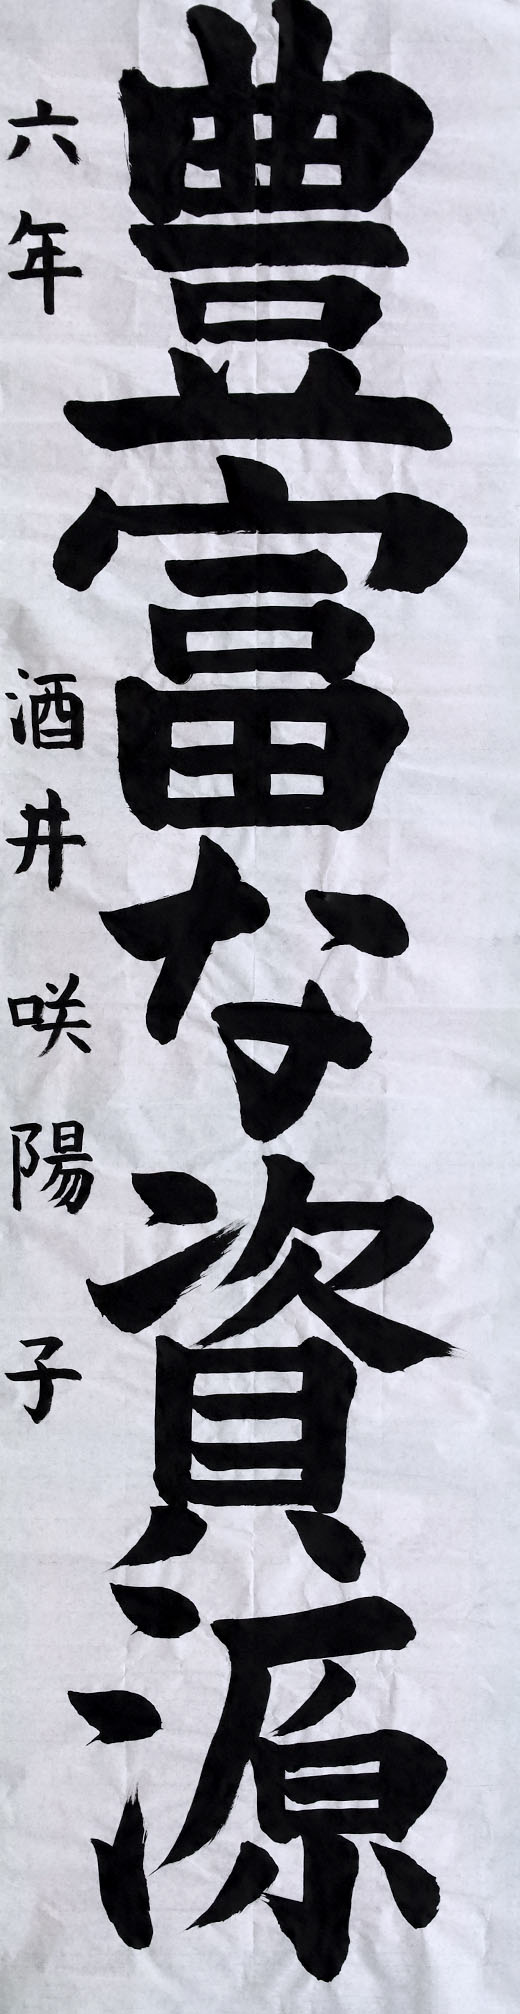 豊富な資源
六年 酒井 咲陽子